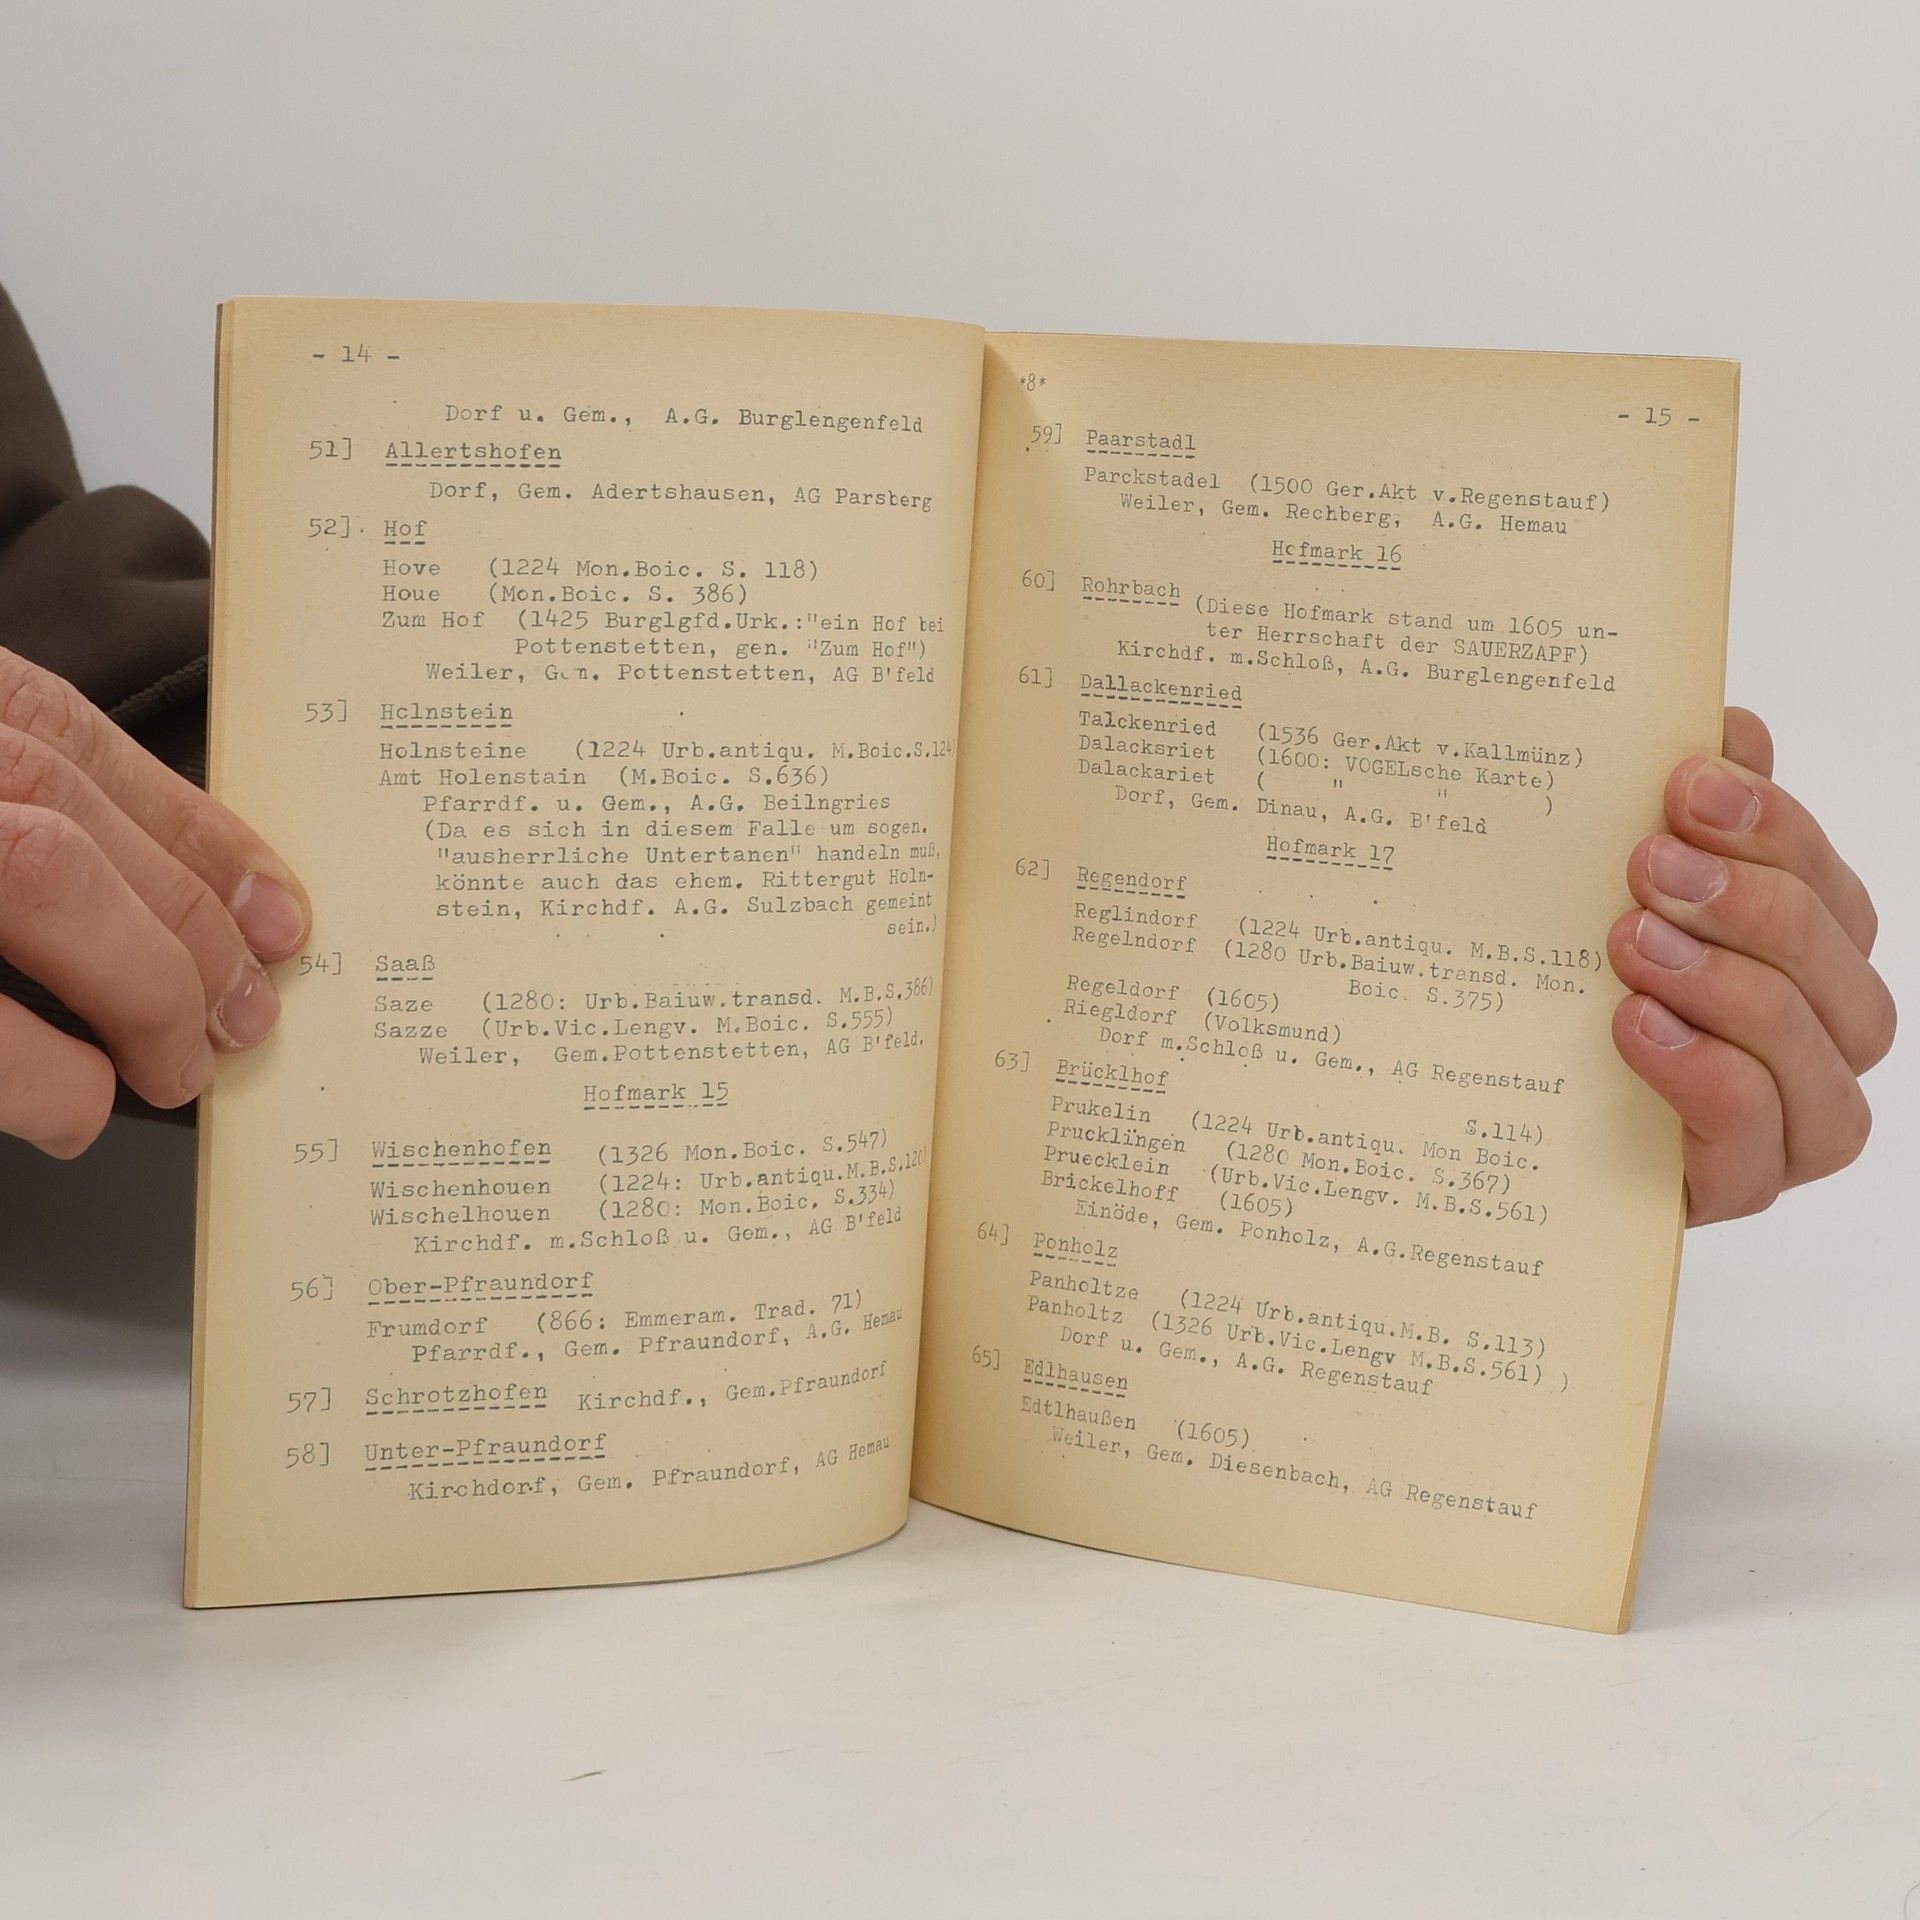 - 14 -
Dorf u. Gem., A.G. Burglengenfeld
51] Allertshofen
Dorf, Gem. Adertshausen, AG Parsberg
52] Hof
Hove (1224 Mon.Boic. S. 118)
Houe (Mon.Boic. S. 386)
Zum Hof (1425 Burglgfd.Urk.:"ein Hof bei
Pottenstetten, gen. "Zum Hof")
Weiler, Gem. Pottenstetten, AG B'feld
53] Holnstein
Holnsteine (1224 Urb.antiqu. M.Boic.S.124)
Amt Holenstain (M.Boic. S.636)
Pfarrdf. u. Gem., A.G. Beilngries
(Da es sich in diesem Falle um sogen.
"ausherrliche Untertanen" handeln muß,
könnte auch das ehem. Rittergut Holn-
stein, Kirchdf. A.G. Sulzbach gemeint
sein.)
54] Saaß
Saze (1280: Urb.Baiuw.transd. M.B.S.386)
Sazze (Urb.Vic.Lengv. M.Boic. S.555)
Weiler, Gem.Pottenstetten, AG B'feld.
Hofmark 15
55] Wischenhofen (1326 Mon.Boic. S.547)
Wischenhouen (1224: Urb.antiqu.M.B.S.120)
Wischelhouen (1280: Mon.Boic. S.334)
Kirchdf. m.Schloß u. Gem., AG B'feld
56] Ober-Pfraundorf
Frumdorf (866: Emmeram. Trad. 71)
Pfarrdf., Gem. Pfraundorf, A.G. Hemau
57] Schrotzhofen Kirchdf., Gem.Pfraundorf
58] Unter-Pfraundorf
Kirchdorf, Gem. Pfraundorf, AG Hemau
*8*
- 15 -
59] Paarstadl
Parckstadel (1500 Ger.Akt v.Regenstauf)
Weiler, Gem. Rechberg, A.G. Hemau
Hofmark 16
60] Rohrbach (Diese Hofmark stand um 1605 un-
ter Herrschaft der SAUERZAPF)
Kirchdf. m.Schloß, A.G. Burglengenfeld
61] Dallackenried
Talckenried (1536 Ger.Akt v.Kallmünz)
Dalacksriet (1600: VOGELsche Karte)
Dalackariet ( " " )
Dorf, Gem. Dinau, A.G. B'feld
Hofmark 17
62] Regendorf
Reglindorf (1224 Urb.antiqu. M.B.S.118)
Regelndorf (1280 Urb.Baiuw.transd. Mon.
Boic. S.375)
Regeldorf (1605)
Riegldorf (Volksmund)
Dorf m.Schloß u. Gem., AG Regenstauf
63] Brücklhof
S.114)
Prukelin (1224 Urb.antiqu. Mon Boic.
Prucklingen (1280 Mon.Boic. S.367)
Pruecklein (Urb.Vic.Lengv. M.B.S.561)
Brickelhoff (1605)
Einöde, Gem. Ponholz, A.G.Regenstauf
64] Ponholz
Panholtze (1224 Urb.antiqu.M.B. S.113)
Panholtz (1326 Urb.Vic.Lengv M.B.S.561) )
Dorf u. Gem., A.G. Regenstauf
65] Edlhausen
Edtlhaußen (1605)
Weiler, Gem. Diesenbach, AG Regenstauf